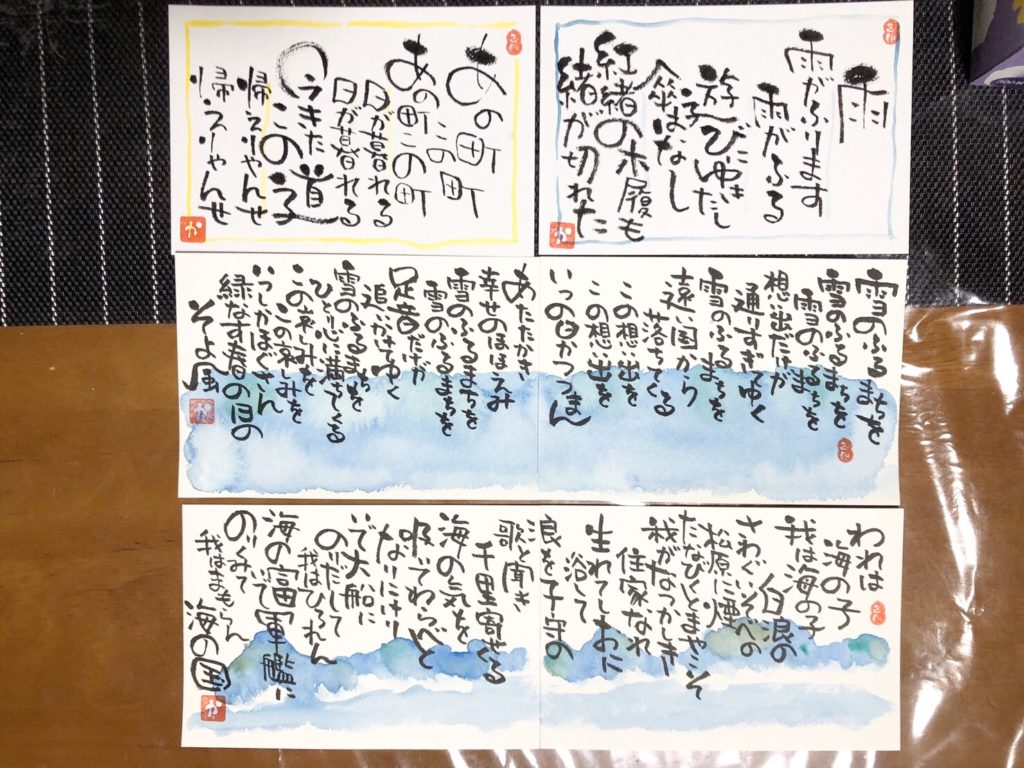 雨
雨がふります
雨がふる
遊びにゆきたし
傘はなし
紅緒の木履も
緒が切れた
あの町
この町
あの町この町
日が暮れる
日が暮れる
今きた
この道
帰えりゃんせ
帰えりゃんせ
か
雪のふるまちを
雪のふるまちを
雪のふるまちを
想い出だけが
通りすぎゆく
雪のふるまちを
遠い国から
落ちてくる
この想い出を
この想い出を
いつの日かつつまん
あたたかき
幸せのほほえみ
雪のふるまちを
雪のふるまちを
足音だけが
追いかけてゆく
雪のふるまちを
ひとり心に満ちてくる
この哀しみを
この哀しみを
いつしかほぐさん
緑なす春の日の
そよ風
われは
海の子
我は海の子
白浪の
さわぐいそべの
松原に煙
たなびくとまやこそ
我がなつかしき
住家なれ
生れてしおに
浴して
浪を子守の
歌と聞き
千里寄せくる
海の気を
吸いてわらべと
なりにけり
いで大船に
のりだして
我はひろわん
海の富
いで軍艦に
のりくみて
我はまもらん
海の国
か